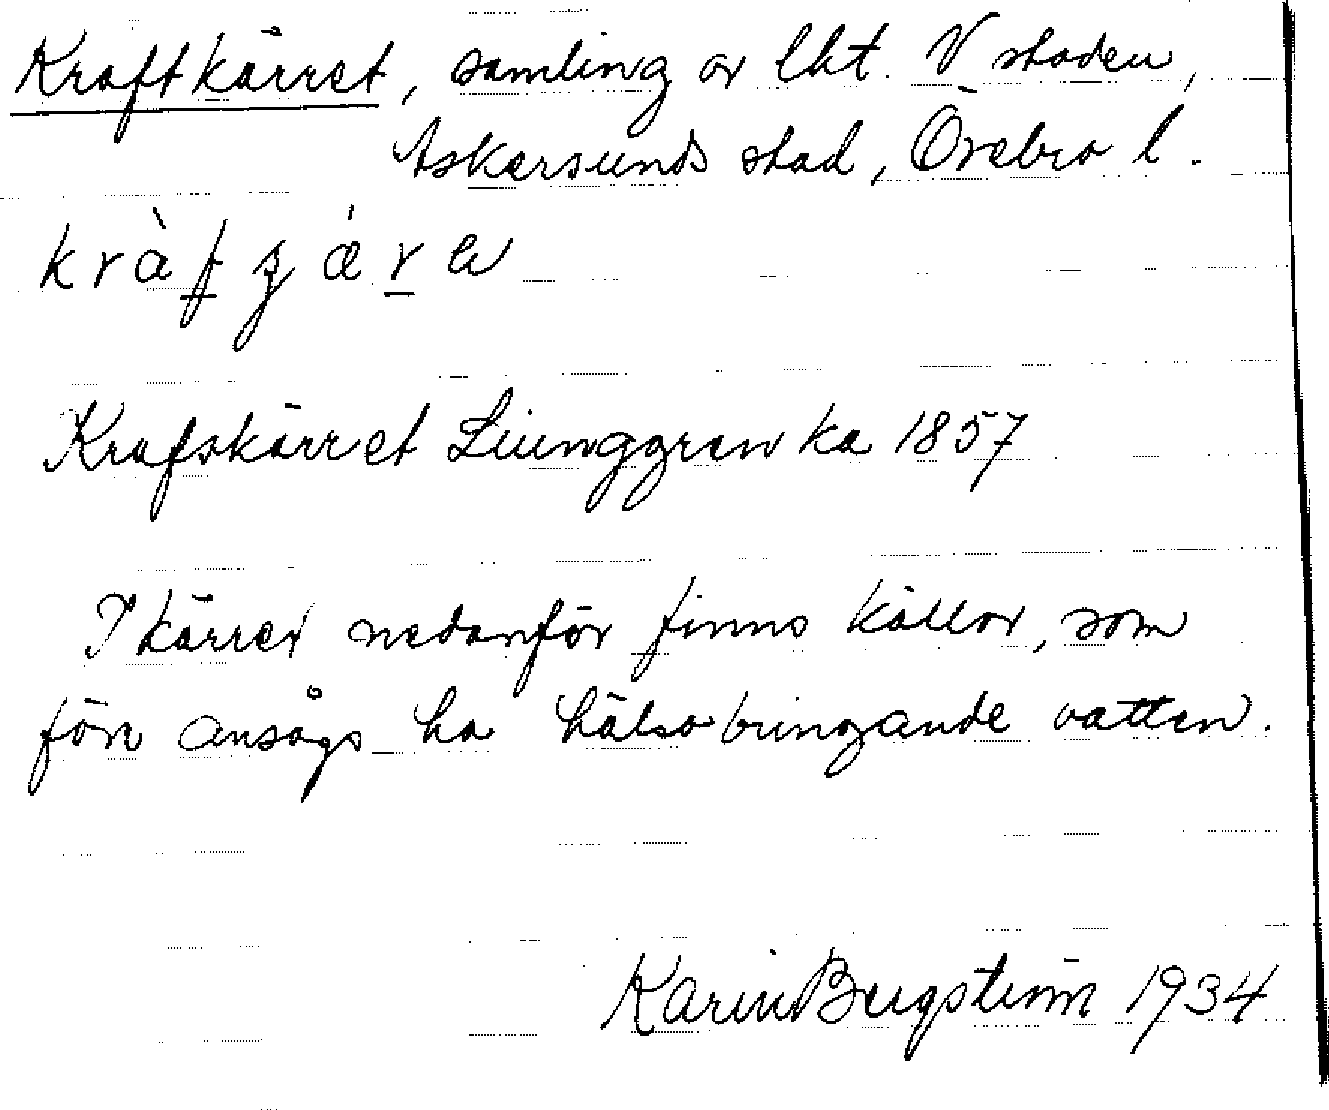 Kraftkärret, samling av lht. V staden,
Askersunds stad, Örebro l.
kràfʒǽra
Krafskärret Liunggren ka 1857
I kärret nedanför finns källor, som
förr ansågs ha hälsobringande vatten.
Karin Bergström 1934